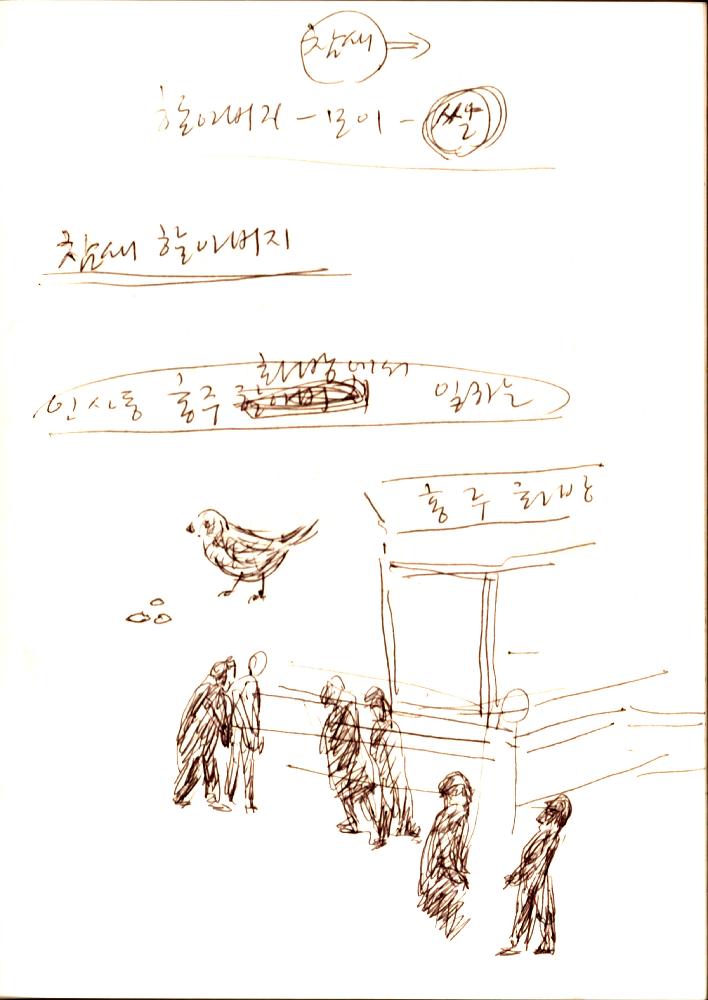 참새 →
할아버지 - 모이 - 쌀
참새 할아버지
화방에서
인사동 홍주 일하는
홍주화방